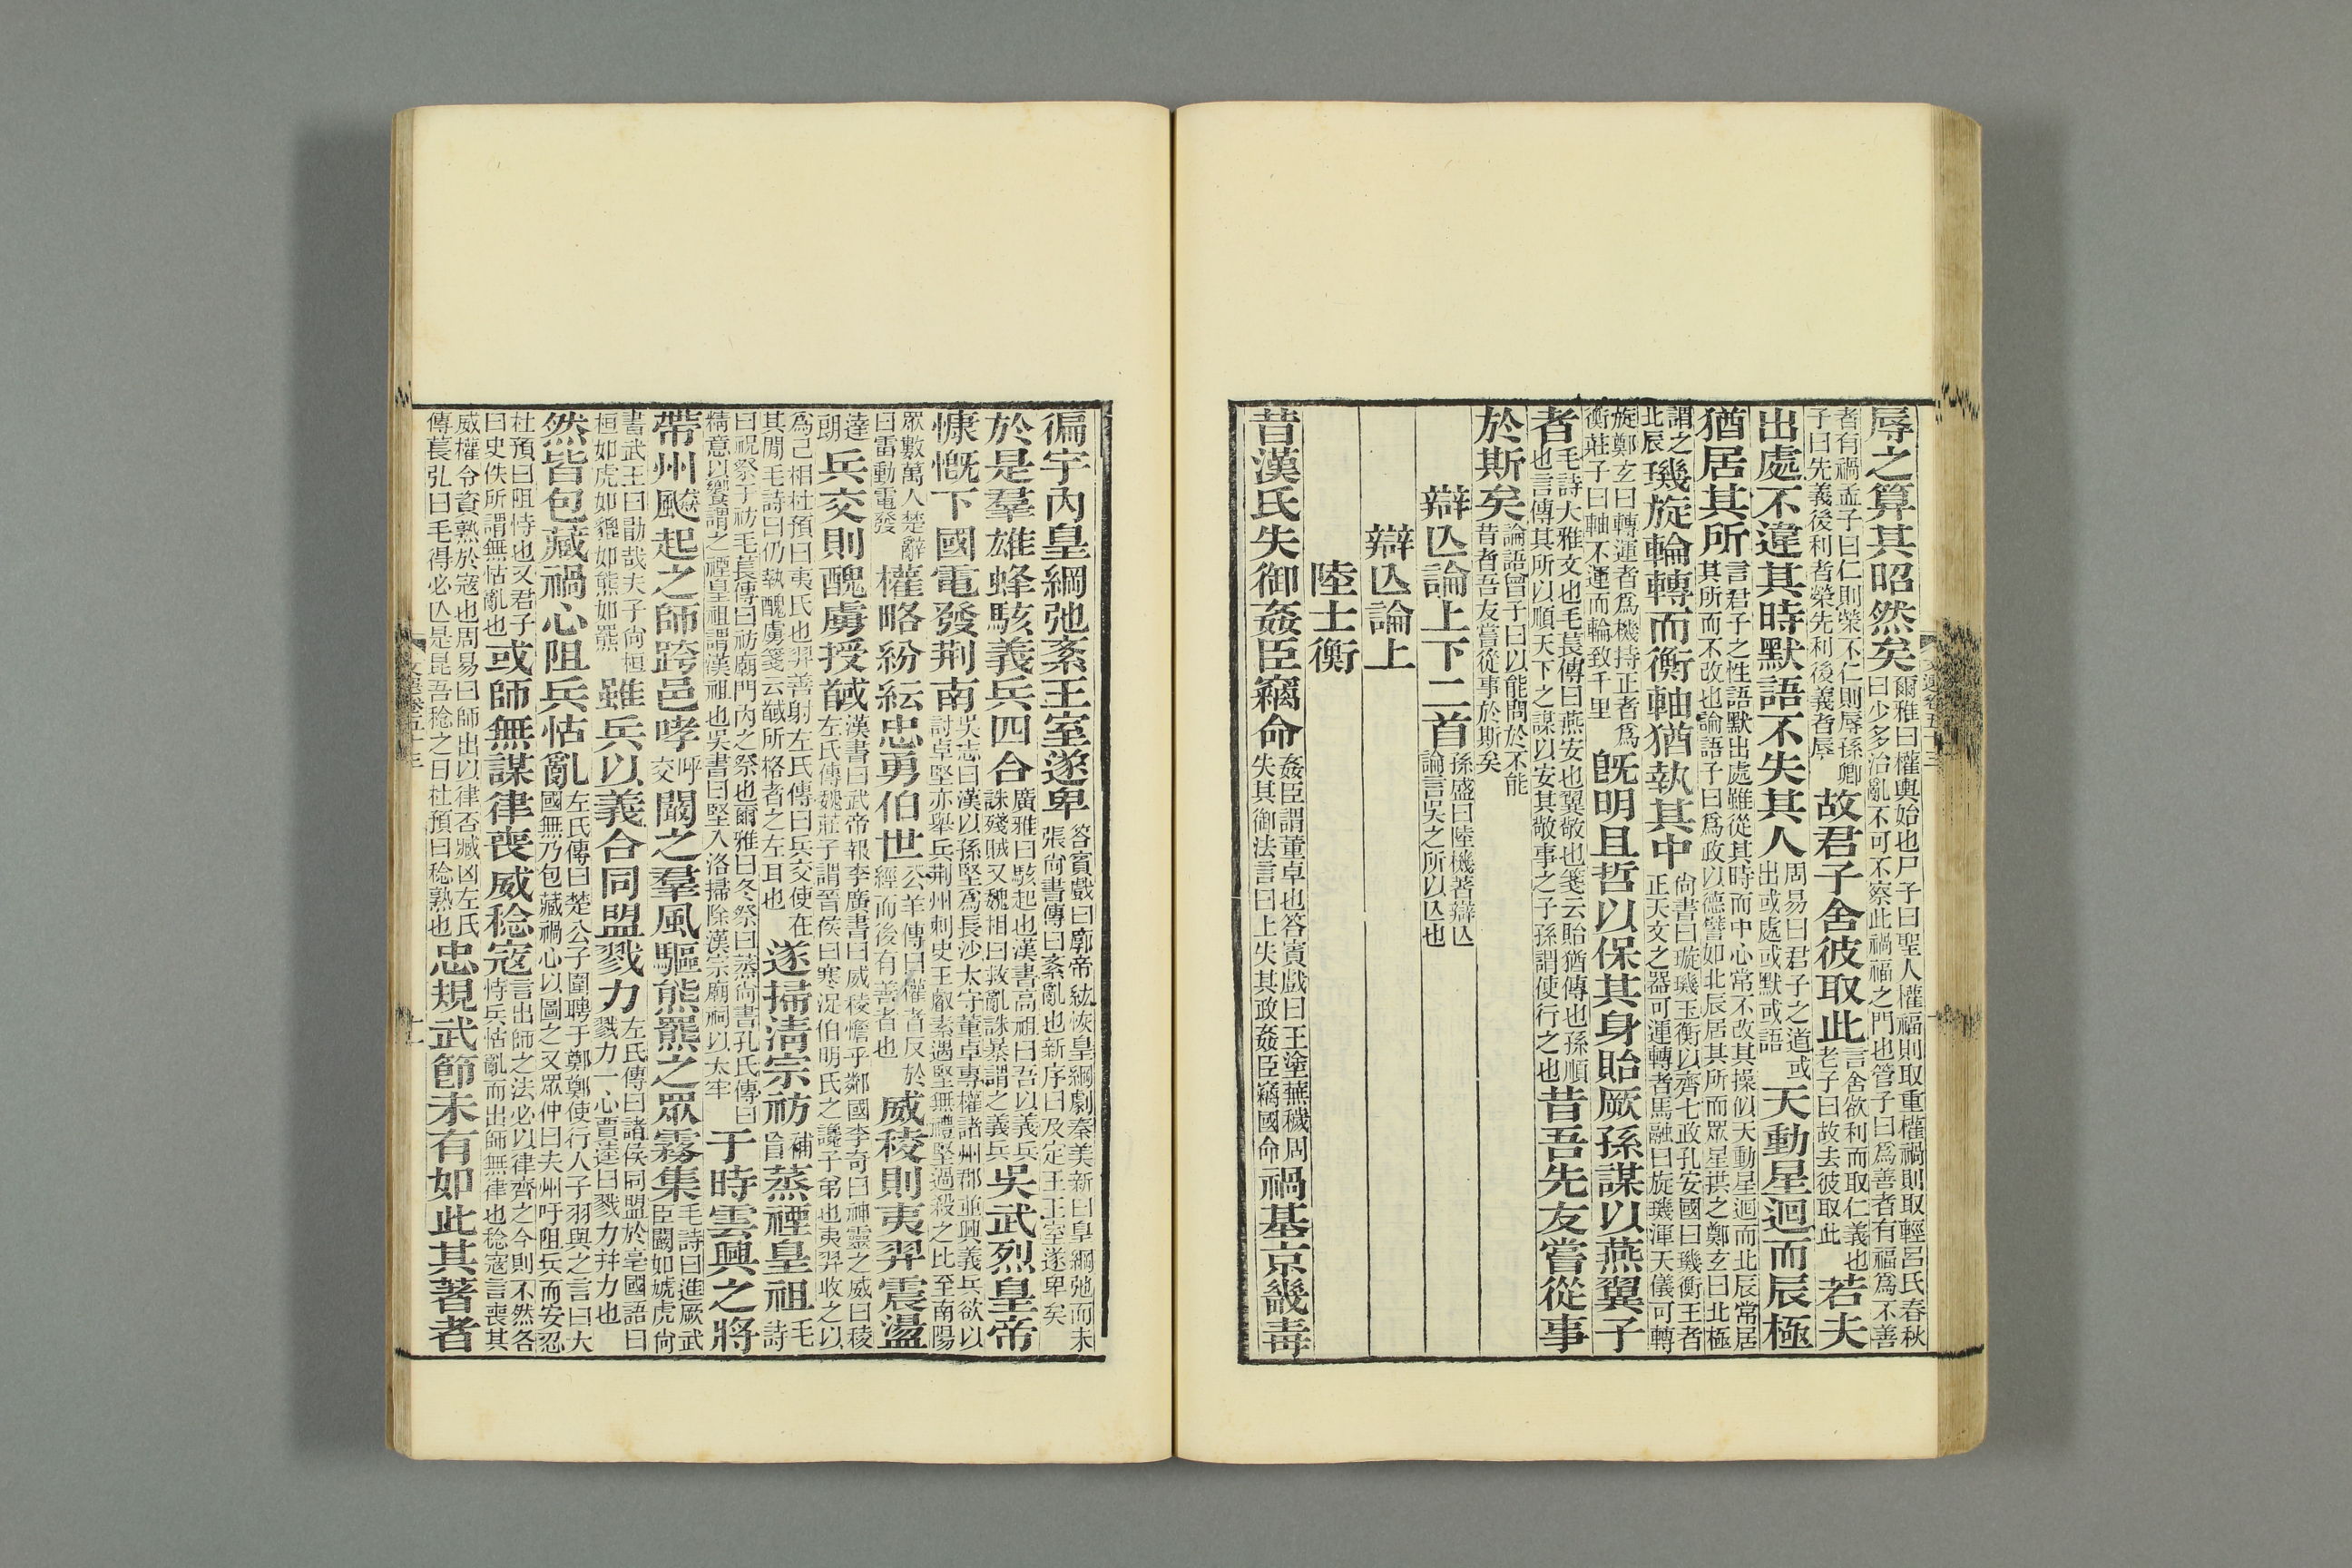 辱之算其昭然矣爾雅曰權輿始也尸子曰聖人權福則取重權禍則取輕呂氏春秋曰少多治亂不可不察此禍福之門也管子曰爲善者有福爲不善
者有禍孟子曰仁則榮不仁則辱孫卿子曰先義後利者榮先利後義者辱故君子舍彼取此言舍欲利而取仁義也老子曰故去彼取此若夫
出處不違其時默語不失其人周易曰君子之道或出或處或默或語天動星迴而辰極
猶居其所言君子之性語默出處雖從其時而中心常不改其操似天動星迴而北辰常居其所而不改也論語子曰爲政以德譬如北辰居其所而眾星拱之鄭玄曰北極
謂之北辰璣旋輪轉而衡軸猶執其中尚書曰璇璣玉衡以齊七政孔安國曰璣衡王者正天文之器可運轉者馬融曰旋璣渾天儀可轉
旋鄭玄曰轉運者爲機持正者爲衡莊子曰軸不運而輪致千里旣明且哲以保其身貽厥孫謀以燕翼子
者毛詩大雅文也毛萇傳曰燕安也翼敬也箋云貽猶傳也孫順也言傳其所以順天下之謀以安其敬事之子孫謂使行之也昔吾先友嘗從事
於斯矣論語曾子曰以能問於不能昔者吾友嘗從事於斯矣
辯亾論上下二首孫盛曰陸機著辯亾論言吳之所以亾也
辯亾論上
陸士衡
昔漢氏失御姦臣竊命姦臣謂董卓也答賓戲曰王塗蕪穢周失其御法言曰上失其政姦臣竊國命禍基京畿毒
徧宇內皇綱弛紊王室遂卑答賓戲曰廓帝紘恢皇綱劇秦美新曰皇綱弛而未張尚書傳曰紊亂也新序曰及定王王室遂卑矣
於是羣雄蜂駭義兵四合廣雅曰駭起也漢書高祖曰吾以義兵誅殘賊又魏相曰救亂誅暴謂之義兵吳武烈皇帝
慷慨下國電發荆南吳志曰漢以孫堅爲長沙太守董卓專權諸州郡並興義兵欲以討卓堅亦舉兵荆州刺史王叡素遇堅無禮堅過殺之比至南陽
眾數萬人楚辭曰雷動電發權略紛紜忠勇伯世公羊傳曰權者反於經而後有善者也威稜則夷羿震盪
達朙兵交則醜虜授馘漢書曰武帝報李廣書曰威稜憺乎鄰國李奇曰神靈之威曰稜左氏傳魏莊子謂晉侯曰寒浞伯明氏之讒子弟也夷羿收之以
爲己相杜預曰夷氏也羿善射左氏傳曰兵交使在其閒毛詩曰仍執醜虜箋云馘所格者之左耳也遂掃清宗祊補盲蒸禋皇祖毛詩
曰祝祭于祊毛萇傳曰祊廟門內之祭也爾雅曰冬祭曰蒸尚書孔氏傳曰精意以饗謂之禋皇祖謂漢祖也吳書曰堅入洛掃除漢宗廟祠以太牢于時雲興之將
帶州飈起之師跨邑哮呼交闞之羣風驅熊羆之眾霧集毛詩曰進厥武臣闞如虓虎尚
書武王曰勖哉夫子尚桓桓如虎如貔如熊如羆雖兵以義合同盟戮力左氏傳曰諸侯同盟於亳國語曰戮力一心賈逵曰戮力幷力也
然皆包藏禍心阻兵怙亂左氏傳曰楚公子圍聘于鄭鄭使行人子羽與之言曰大國無乃包藏禍心以圖之又眾仲曰夫州吁阻兵而安忍
杜預曰阻恃也又君子曰史佚所謂無怙亂也或師無謀律喪威稔寇言出師之法必以律齊之今則不然各恃兵怙亂而出師無律也稔寇言喪其
威權令資熟於寇也周易曰師出以律否臧凶左氏傳萇弘曰毛得必亾是昆吾稔之日杜預曰稔熟也忠規武節未有如此其著者